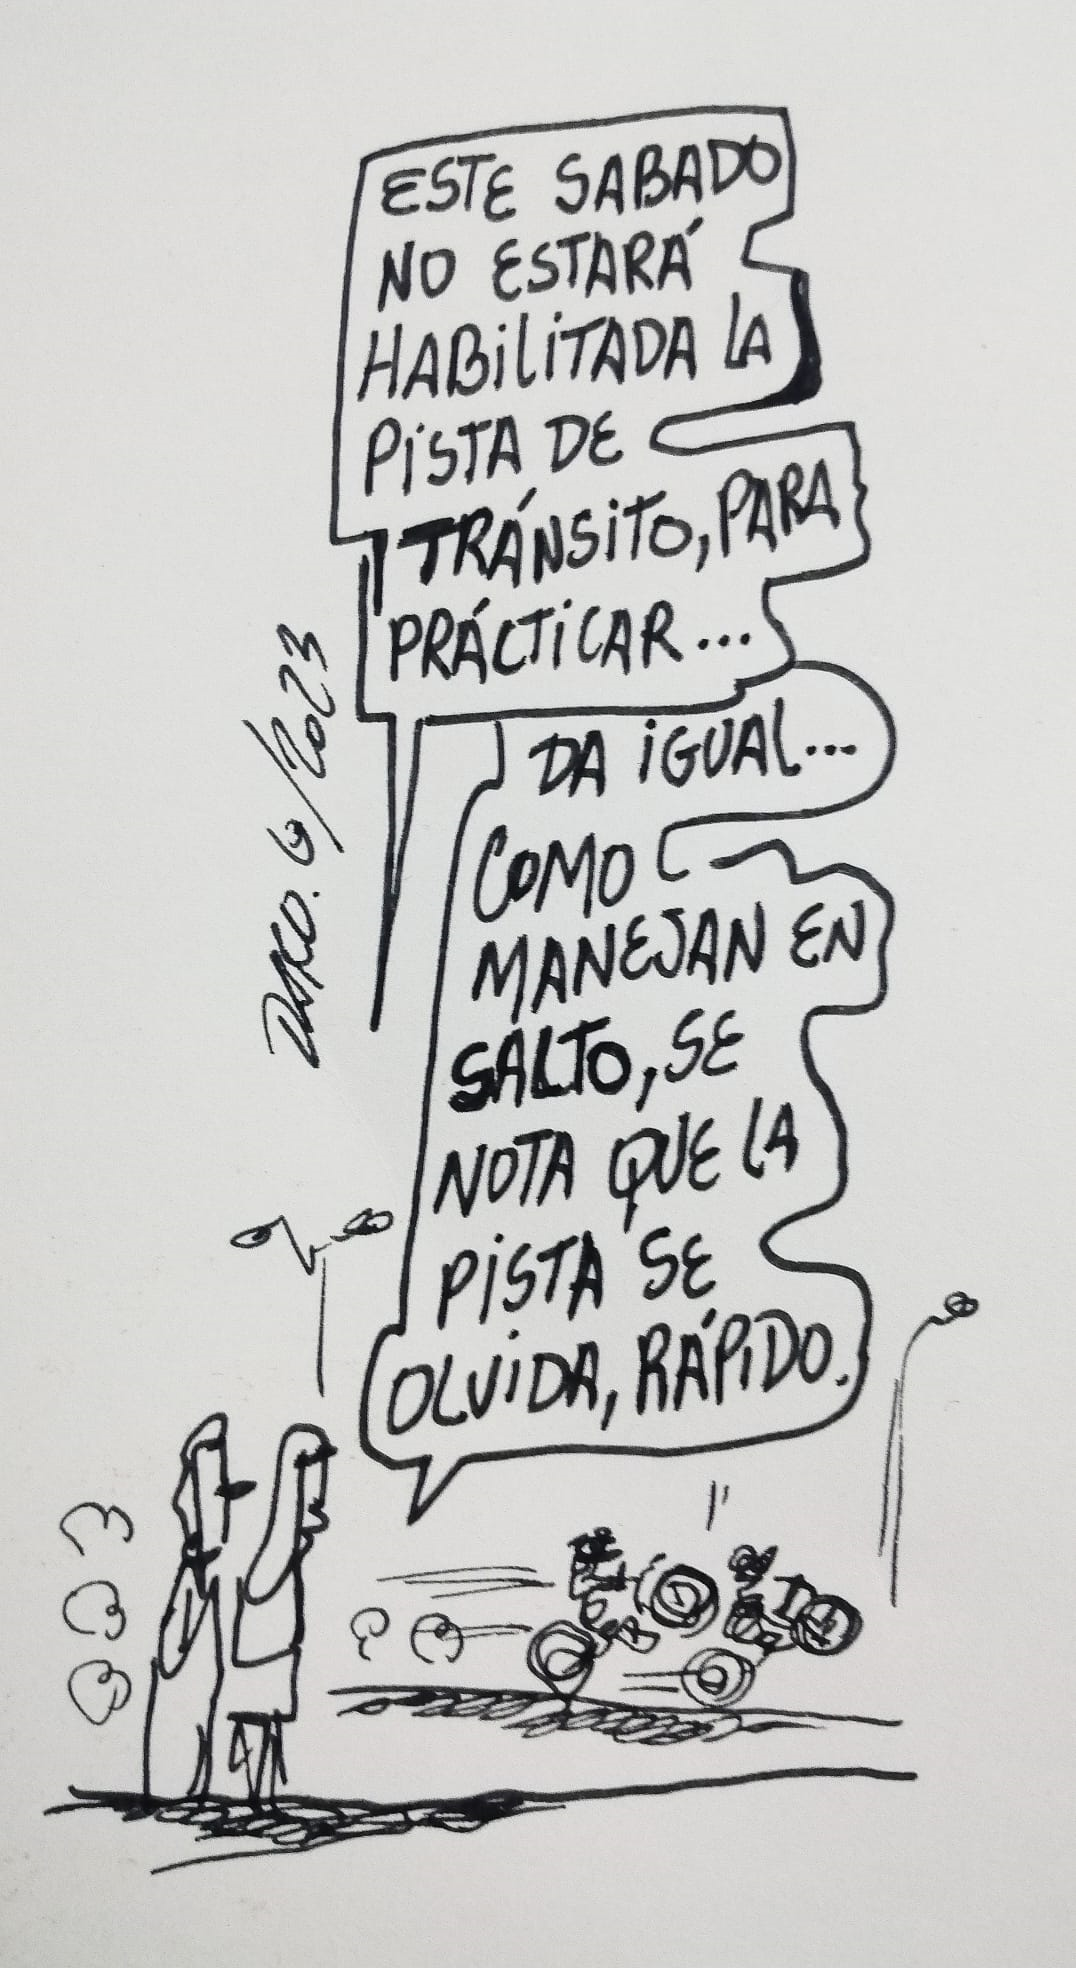 ESTE SABADO
NO ESTARÁ
HABILITADA LA
PISTA DE
TRÁNSITO, PARA
PRÁCTICAR...
DA IGUAL...
COMO
MANEJAN EN
SALTO, SE
NOTA QUE LA
PISTA SE
OLVIDA, RÁPIDO.
6/2023